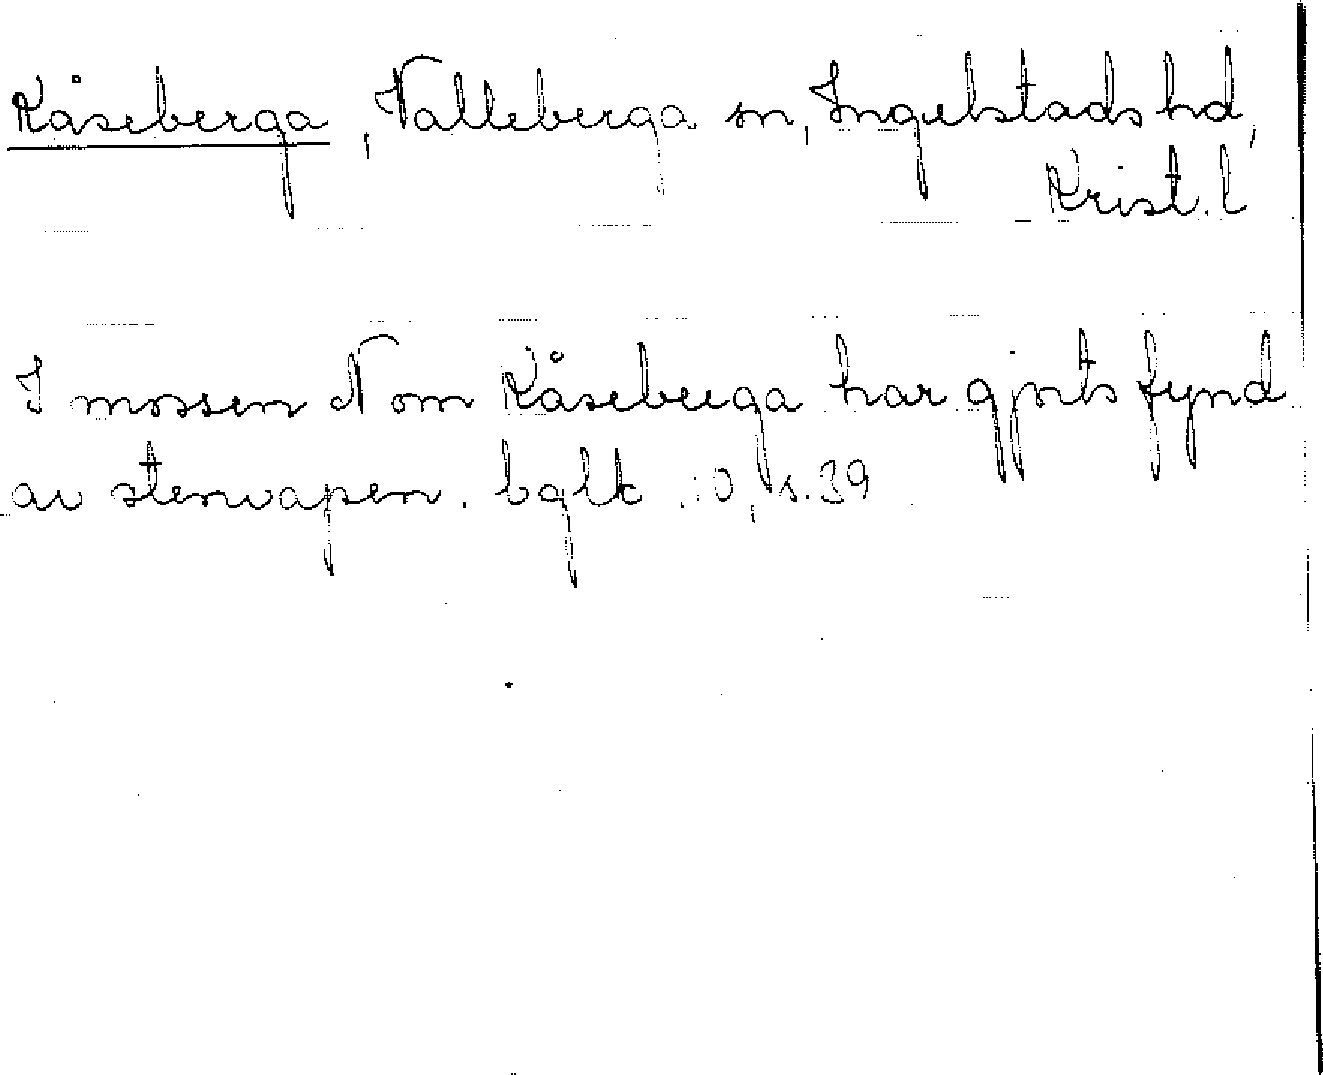 Kåseberga, Valleberga sn, Ingelstads hd,
Krist. l
I mossen N om Kåseberga har gjorts fynd
av stenvapen. bglk :0, s. 39